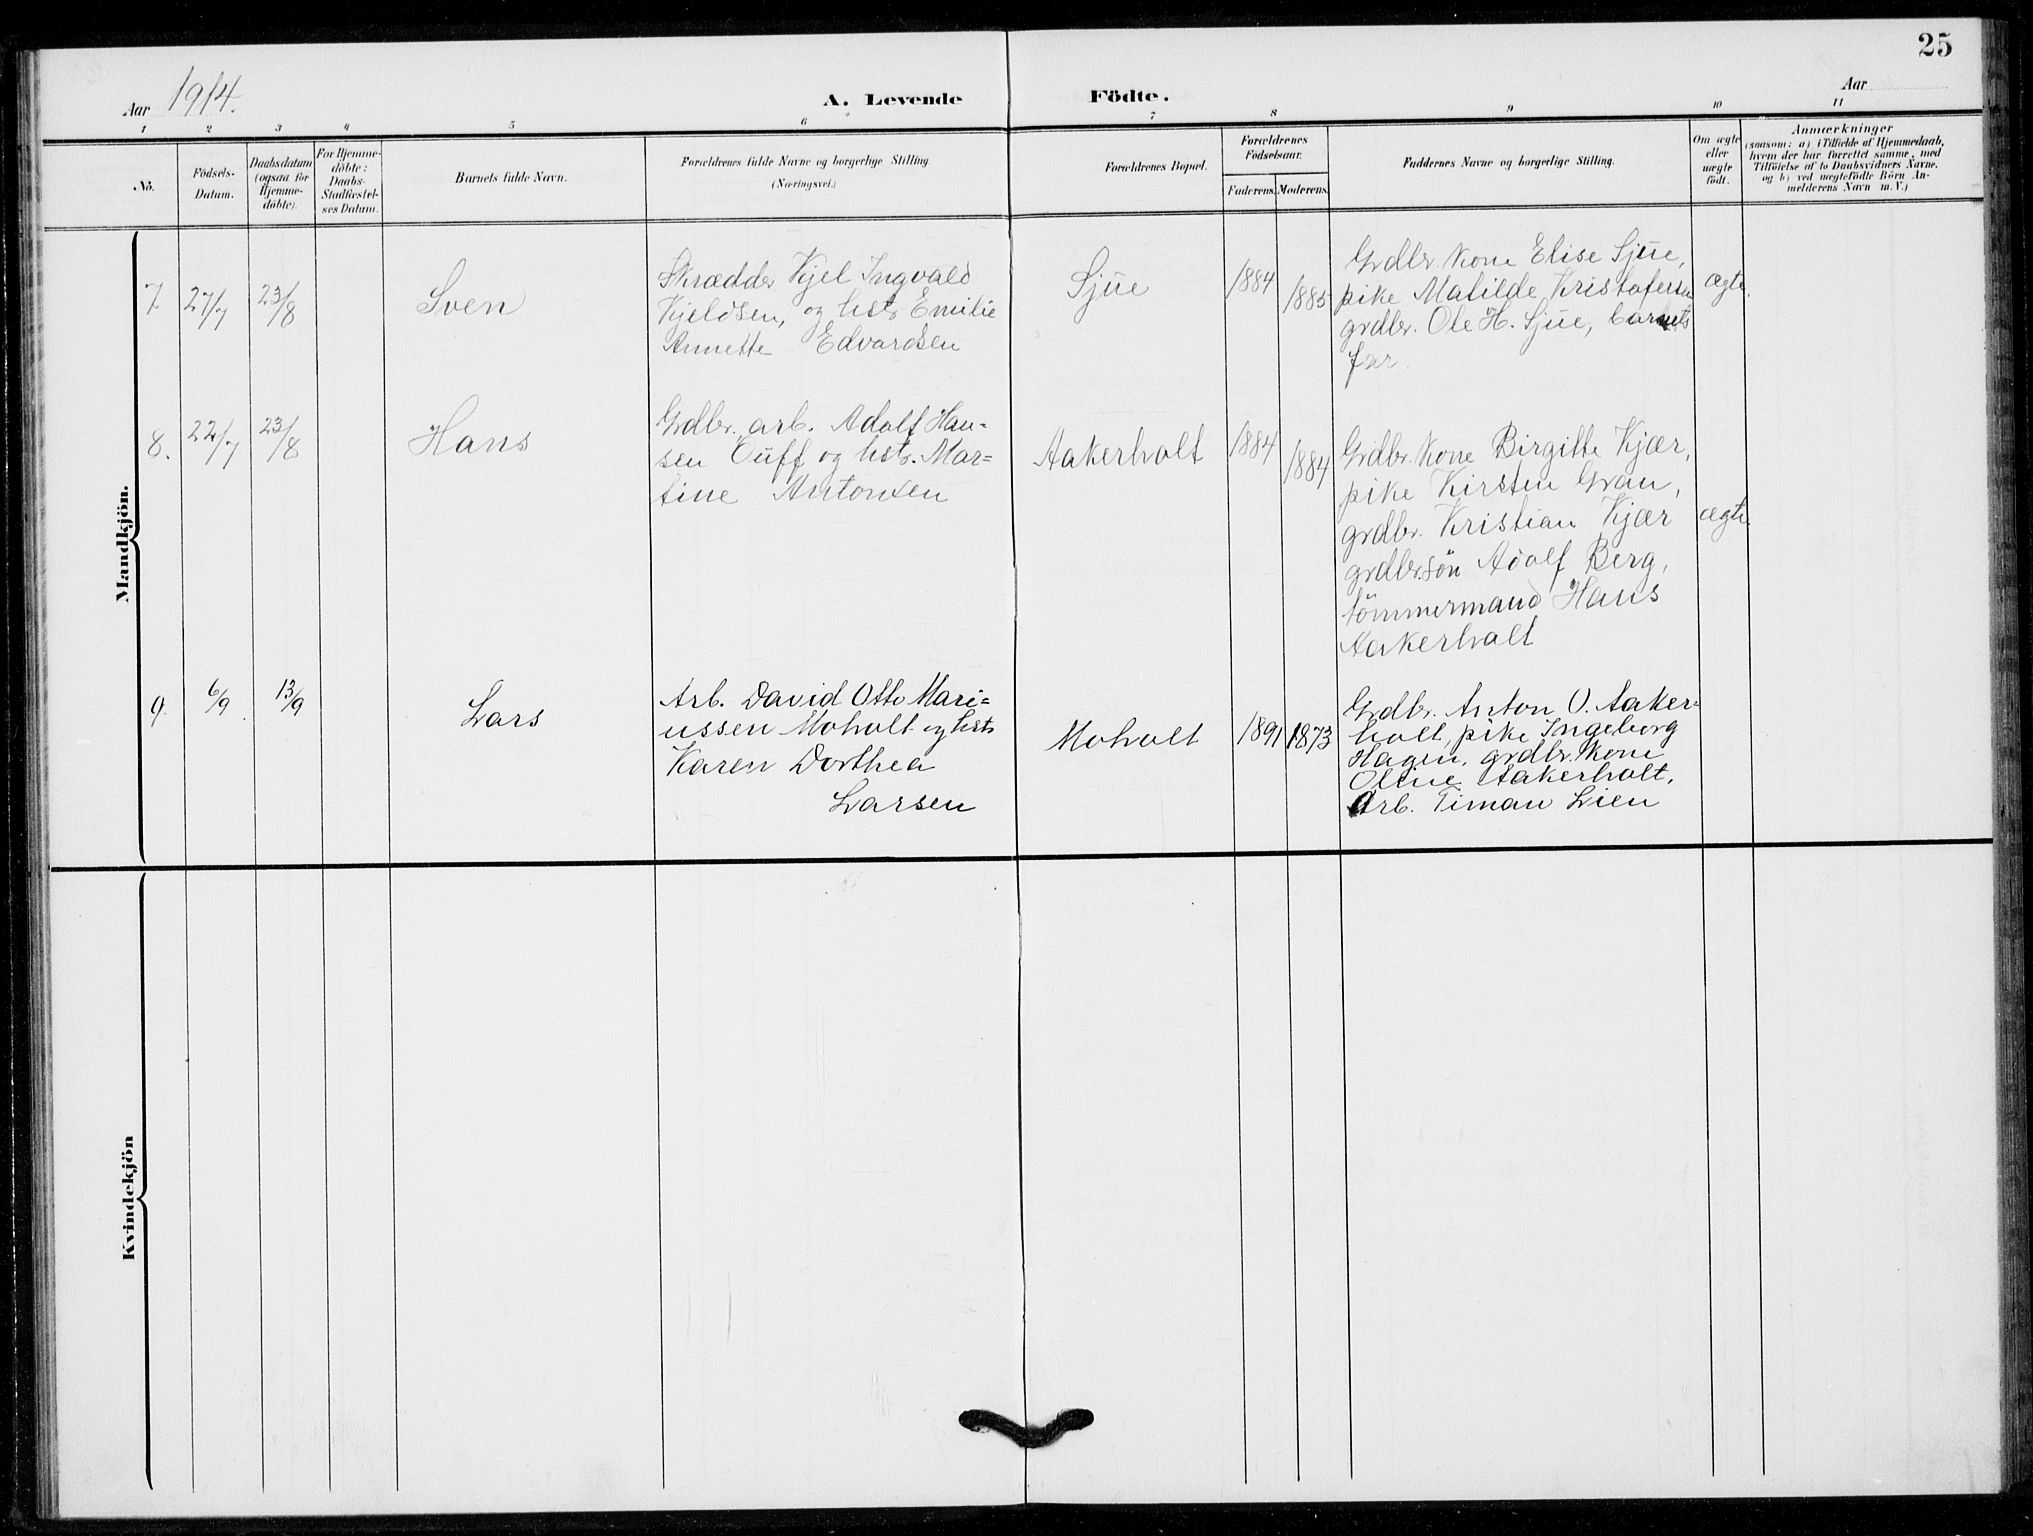 25
Aar 1914.
A. Levende Födte.
Aar
1 2 3 4 5 6 7 8 9 10 11
No.
Födsels-
Datum.
Daabsdatum
(ogsaa for
Hjemme-
döbte).
For Hjemme-
döbte:
Daabs-
Stadfæstel-
ses Datum.
Barnets fulde Navn.
Forældrenes fulde Navne og borgerlige Stilling.
(Næringsvei.)
Forældrenes Bopæl.
Forældrenes
Födselsaar.
Faderens. Moderens.
Faddernes Navne og borgerlige Stilling.
Om ægte
eller
uægte
födt.
Anmærkninger
(saasom: a) i Tilfælde af Hjemmedaab,
hvem der har forrettet samme, med
Tilföielse af to Daabsvidners Navne,
og b) ved uægtefödte Börn An-
melderens Navn m. V.)
Mandkjön.
7. 27/7 23/8
Sven
Skrædder Kjel Ingvald
Kjeldsen, og hstr Emilie
Annette Edvardsen
Sjue
1884
1885
Grdbr. kone Elise Sjue,
pike Matilde Kristofersen
grdbr. Ole H. Sjue, barnets
far.
ægte.
8. 22/7 23/8
Hans
Grdbr. arb. Adolf Han-
sen Tuff og hstr. Mar-
tine Antonsen
Aakerholt
1884
1884
Grdbr. kone Birgitte Kjær,
pike Kirsten Gran,
grdbr. Kristian Kjær
grdbr.sön Adolf Berg,
tömmermand Hans
Aakerholt
ægte.
9. 6/9 13/9
Lars
Arb. David Otto Mari-
ussen Moholt og hstr
Karen Dorthea
Larsen
Moholt
1891 1873
Grdbr. Anton O. Aaker-
holt, pike Ingeborg
Hagen, grdbr. kone
Oline Aakerholt,
Arb. Timan Lien
Kvindekjön